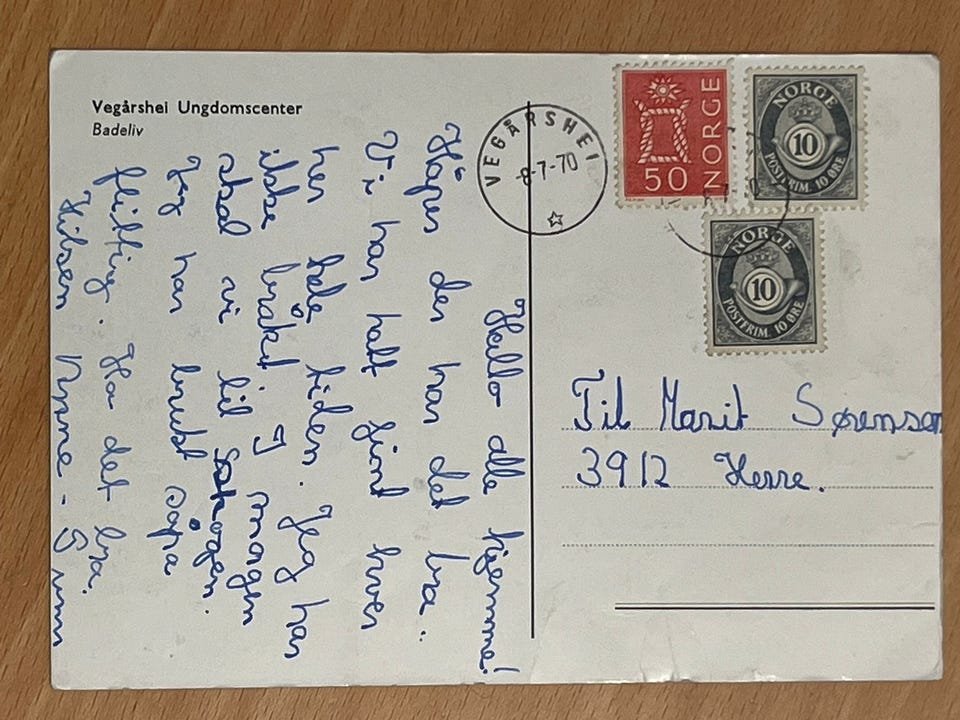 Vegårshei Ungdomscenter
Badeliv
VEGÅRSHEI
8-7-70
50 NORGE
NORGE
10
POSTFRIM. 10 ØRE
NORGE
10
POSTFRIM. 10 ØRE
Hallo alle hjemme!
Håper der har det bra..
Vi har hatt fint hver
her hele tiden. Jeg har
ikke I morgen
skal vi til skogen.
Jeg har brukt såpa
flittig. Ha det bra.
Hilsen
Til Marit Sørensen
3912 Herre.